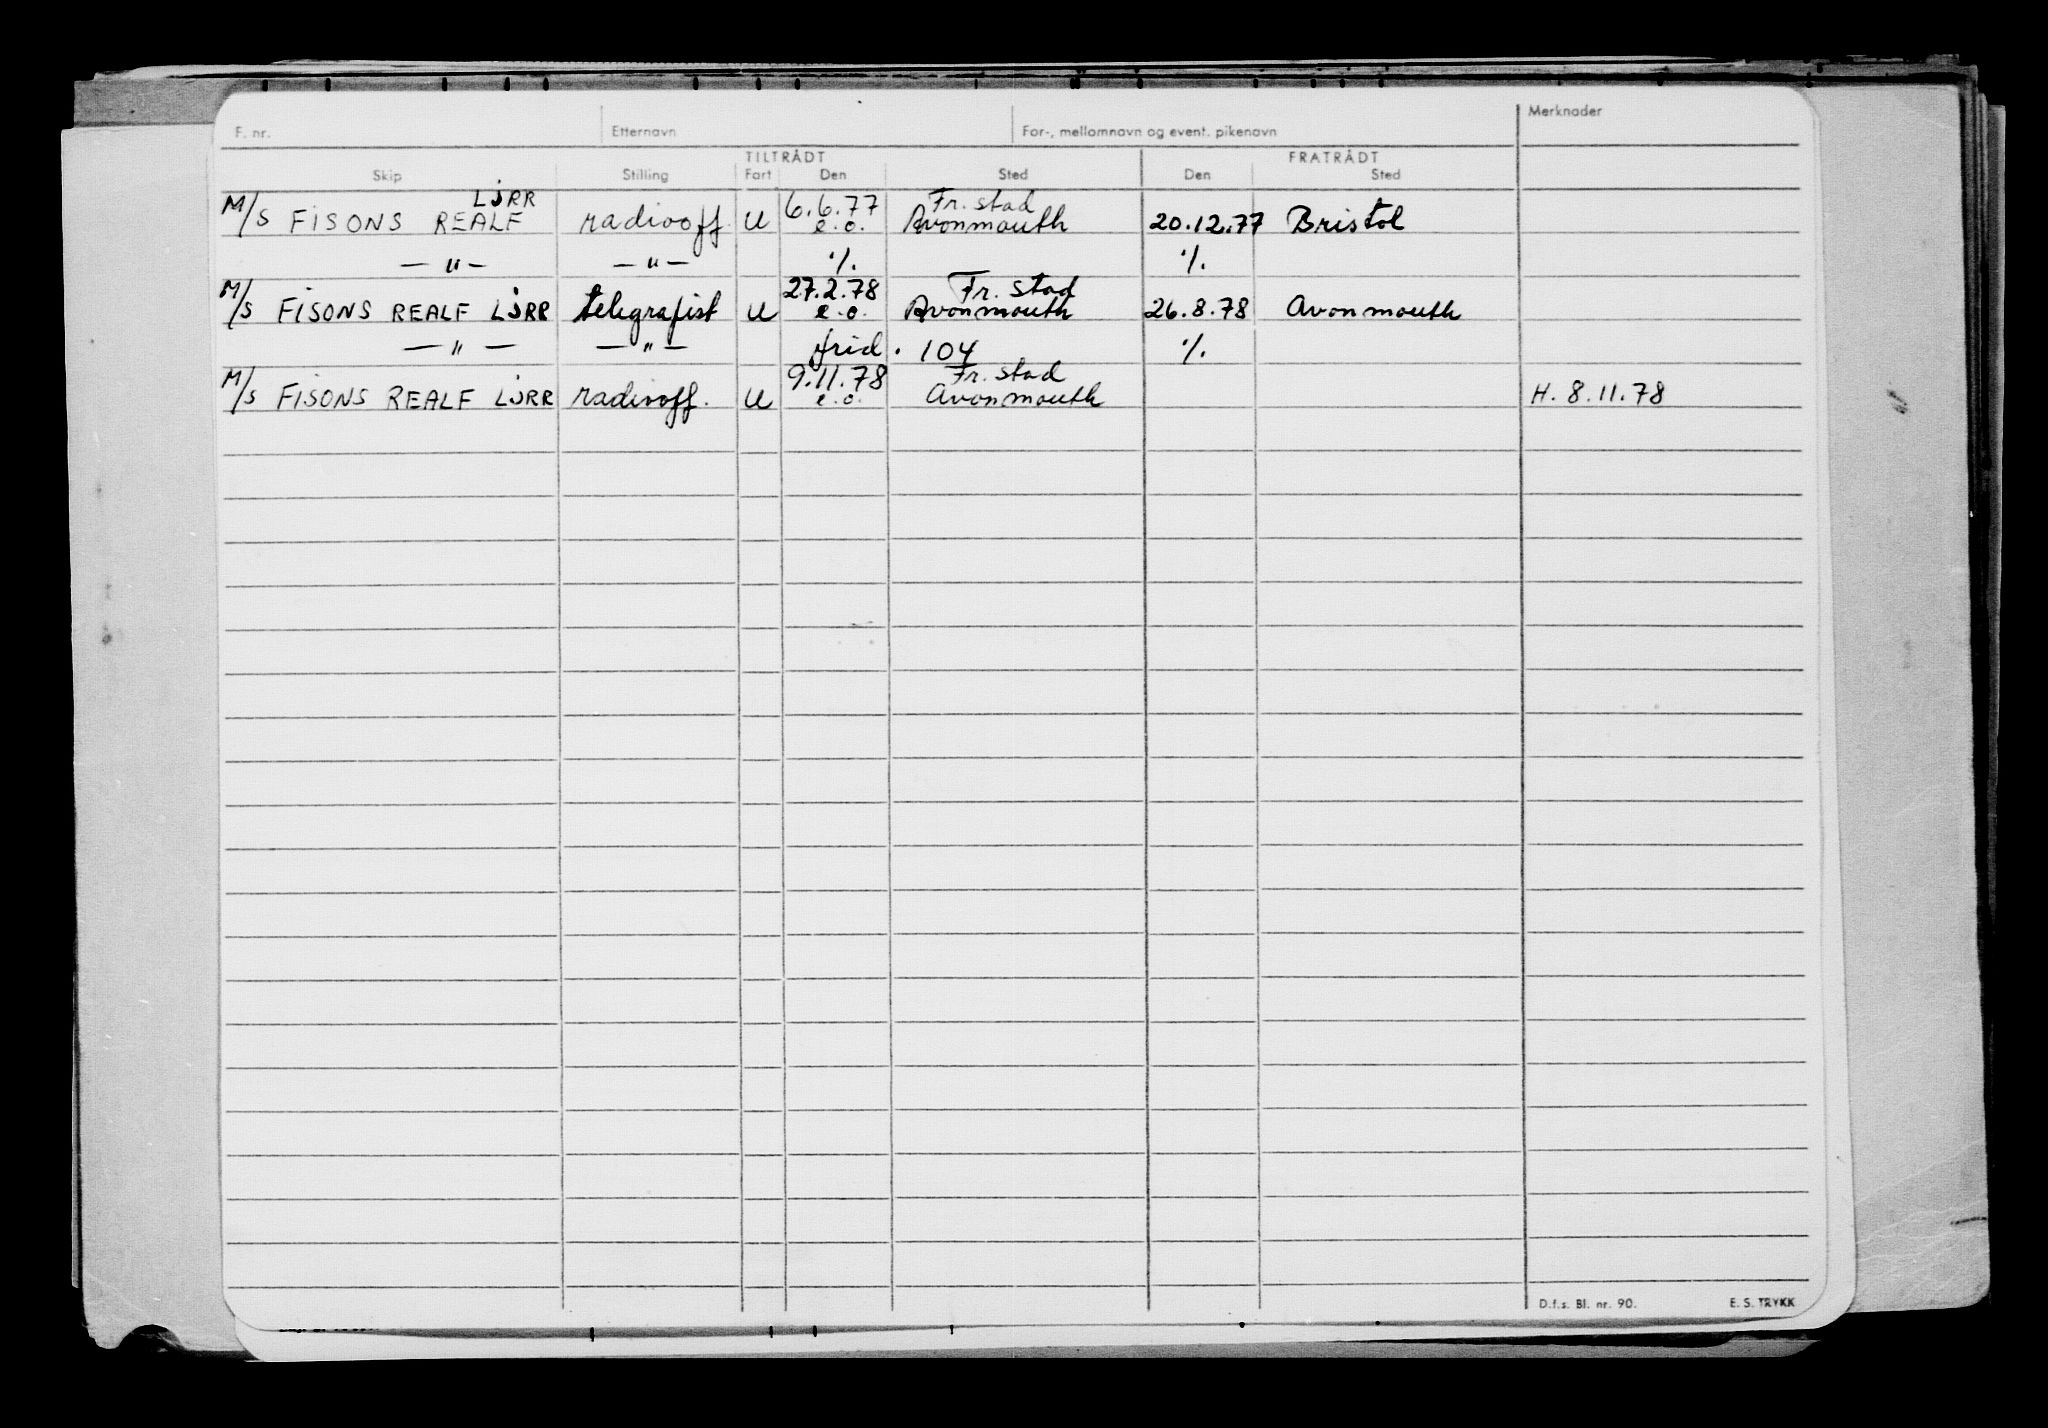 F. nr. Etternavn For-, mellomnavn og event. pikenavn Merknader
TILTRÅDT FRATRÅDT
Skip Stilling Fart Den Sted Den Sted
LJRR 6.6.77 Fr. stad
M/S FISONS REALF radiooff. U e.o. Avonmouth 20.12.77 Bristol
— " — — " — ./. ./.
27.2.78 Fr. stad
M/S FISONS REALF LJRR telegrafist U e.o. Avonmouth 26.8.78 Avonmouth
— " — — " — frid. 104 ./.
9.11.78 Fr. stad
M/S FISONS REALF LJRR radiooff. U e.o. Avonmouth H. 8.11.78
D.f.s. Bl. nr. 90. E. S. TRYKK